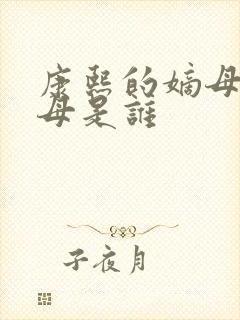 康熙的嫡母
母是誰
子夜月